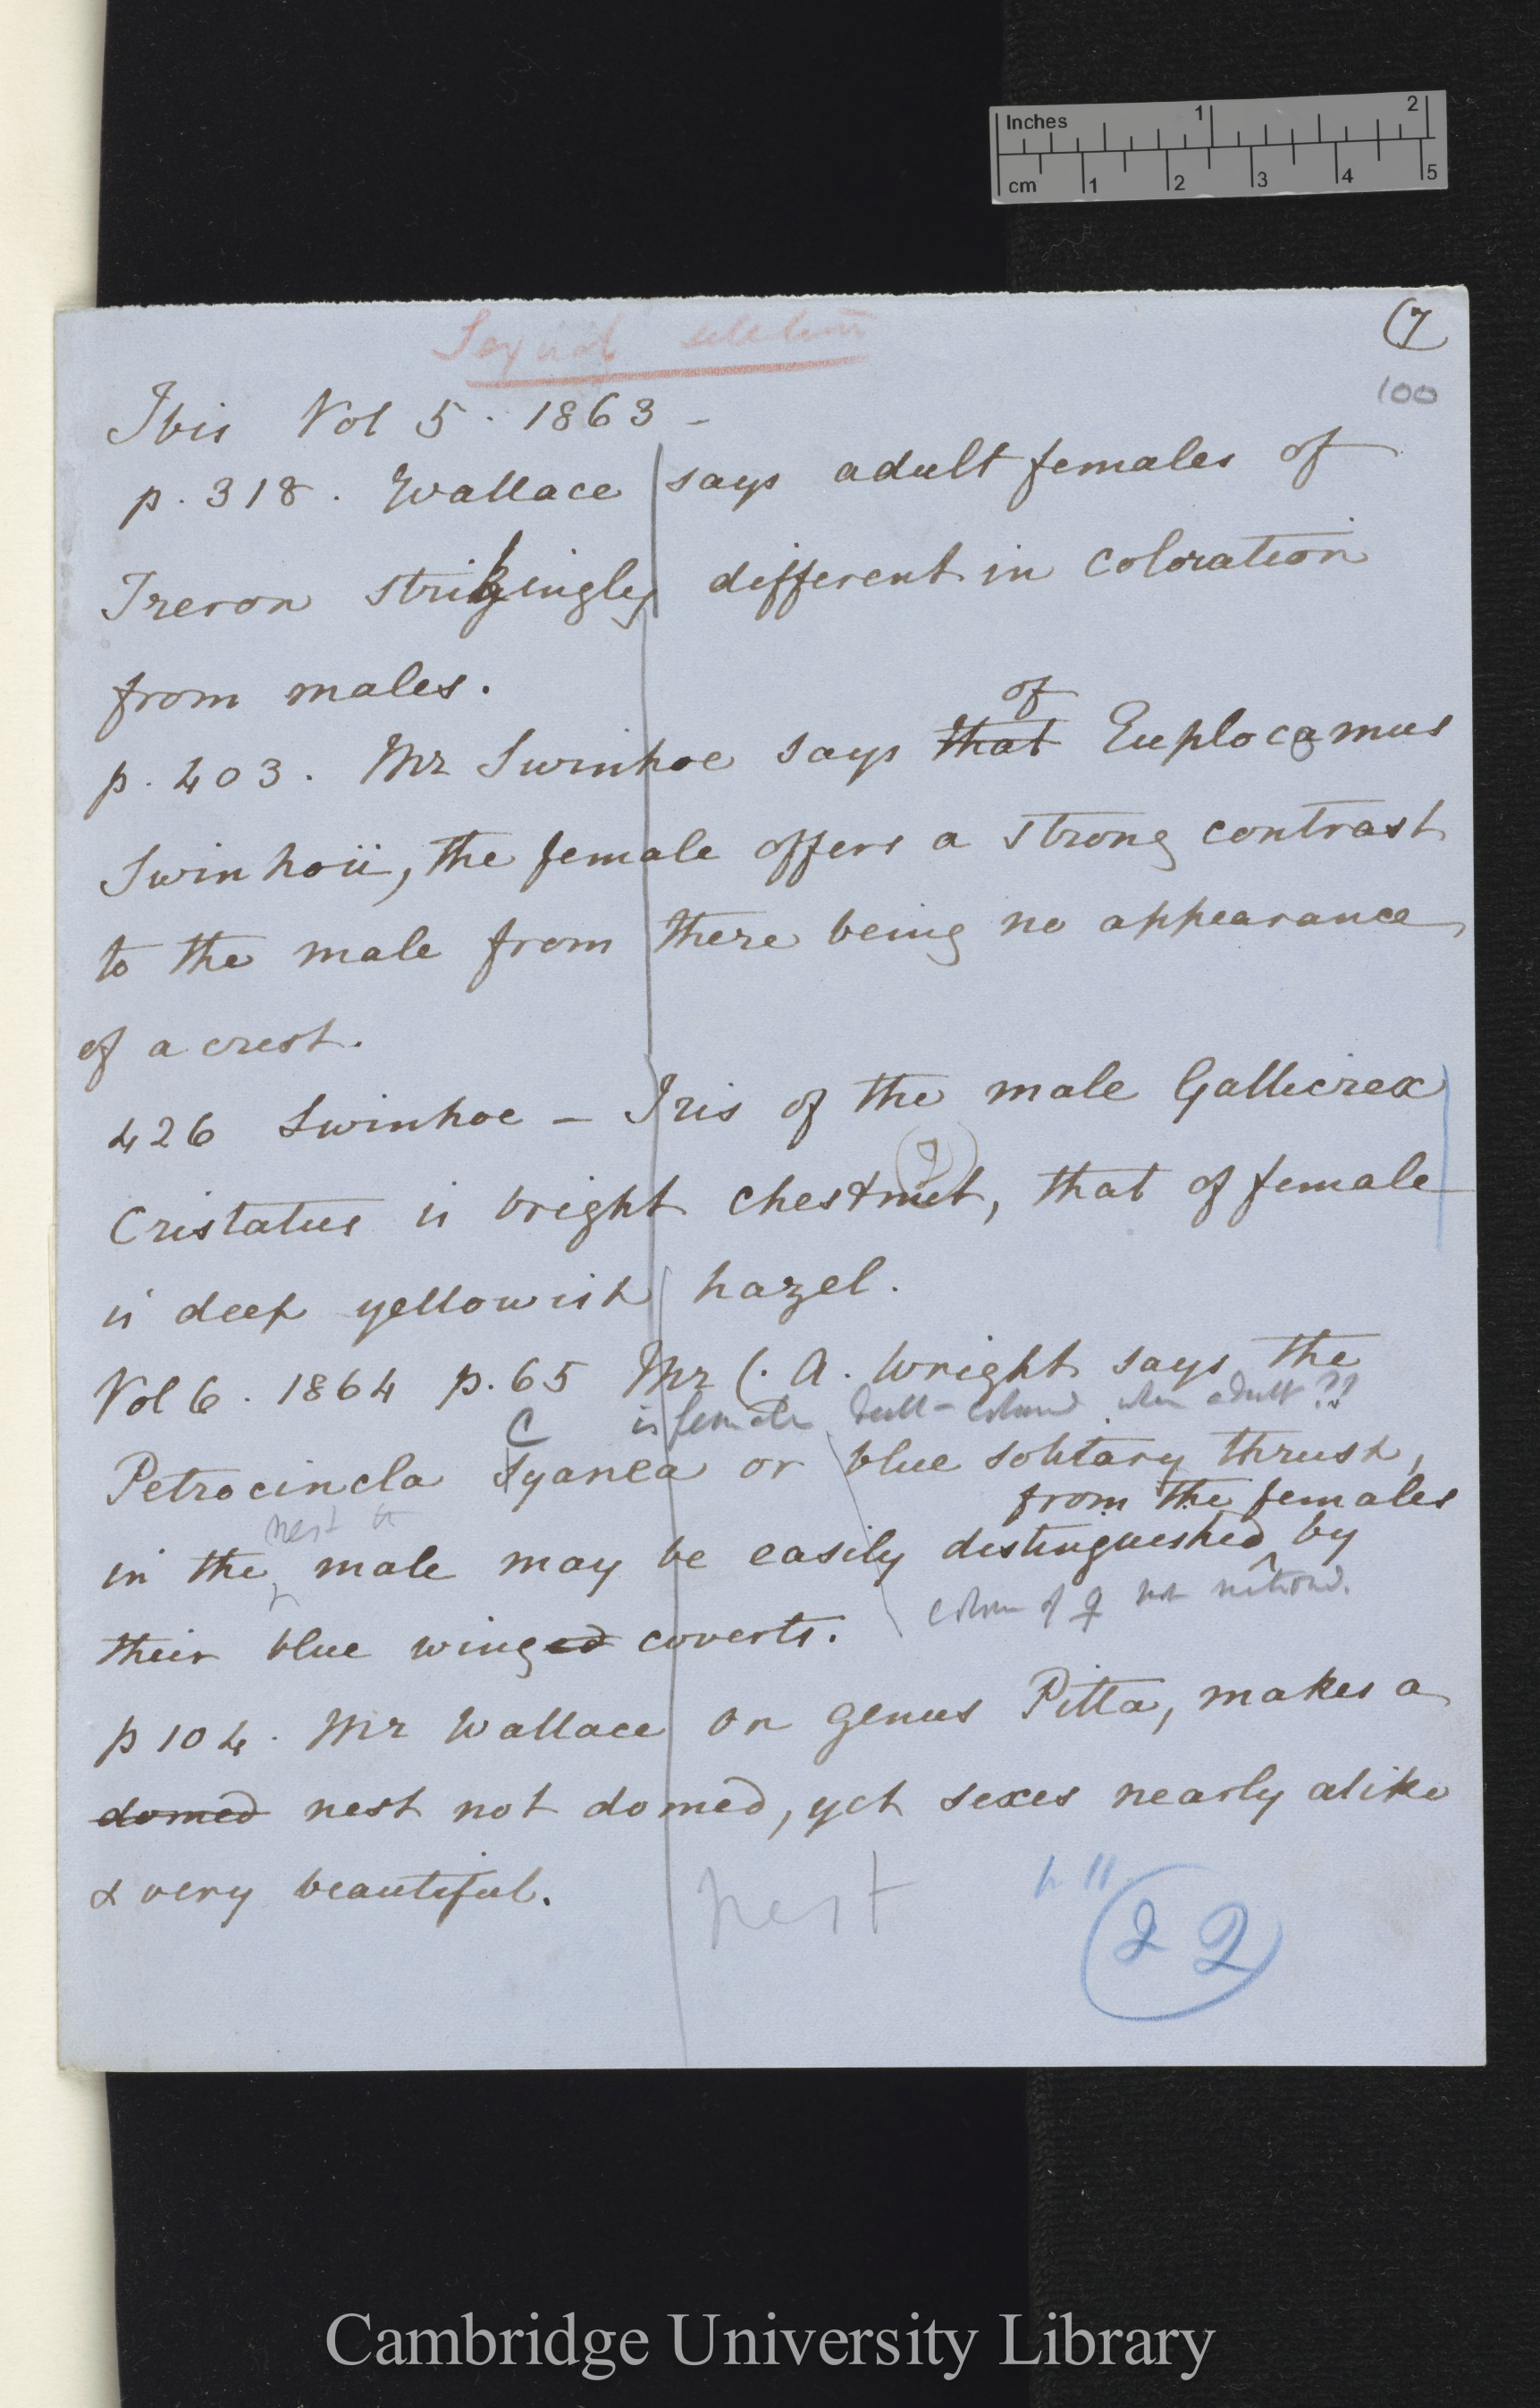 Inches 1 2
cm 1 2 3 4 5
Sexual selection
(7
100
Ibis Vol 5. 1863 -
p. 318. Wallace says adult females of
Treron strikingly different in coloration
from males.
of
p. 403. Mr Swinhoe says that Euplocamus
Swinhoii, the female offers a strong contrast
to the male from there being no appearance
of a crest.
426 Swinhoe - Iris of the male Gallicrex
(2)
Cristatus is bright chestnut, that of female
is deep yellowish hazel.
Vol 6. 1864 p. 65 Mr C. A. Wright says the
is female dull-coloured when adult??
C
Petrocincla Syanea or blue solitary thrush,
from the females
nest
in the male may be easily distinguished by
colour of ♀ not mentioned.
their blue winged coverts.
p 104. Mr Wallace on genus Pitta, makes a
domed nest not domed, yet sexes nearly alike
& very beautiful.
nest
22
Cambridge University Library